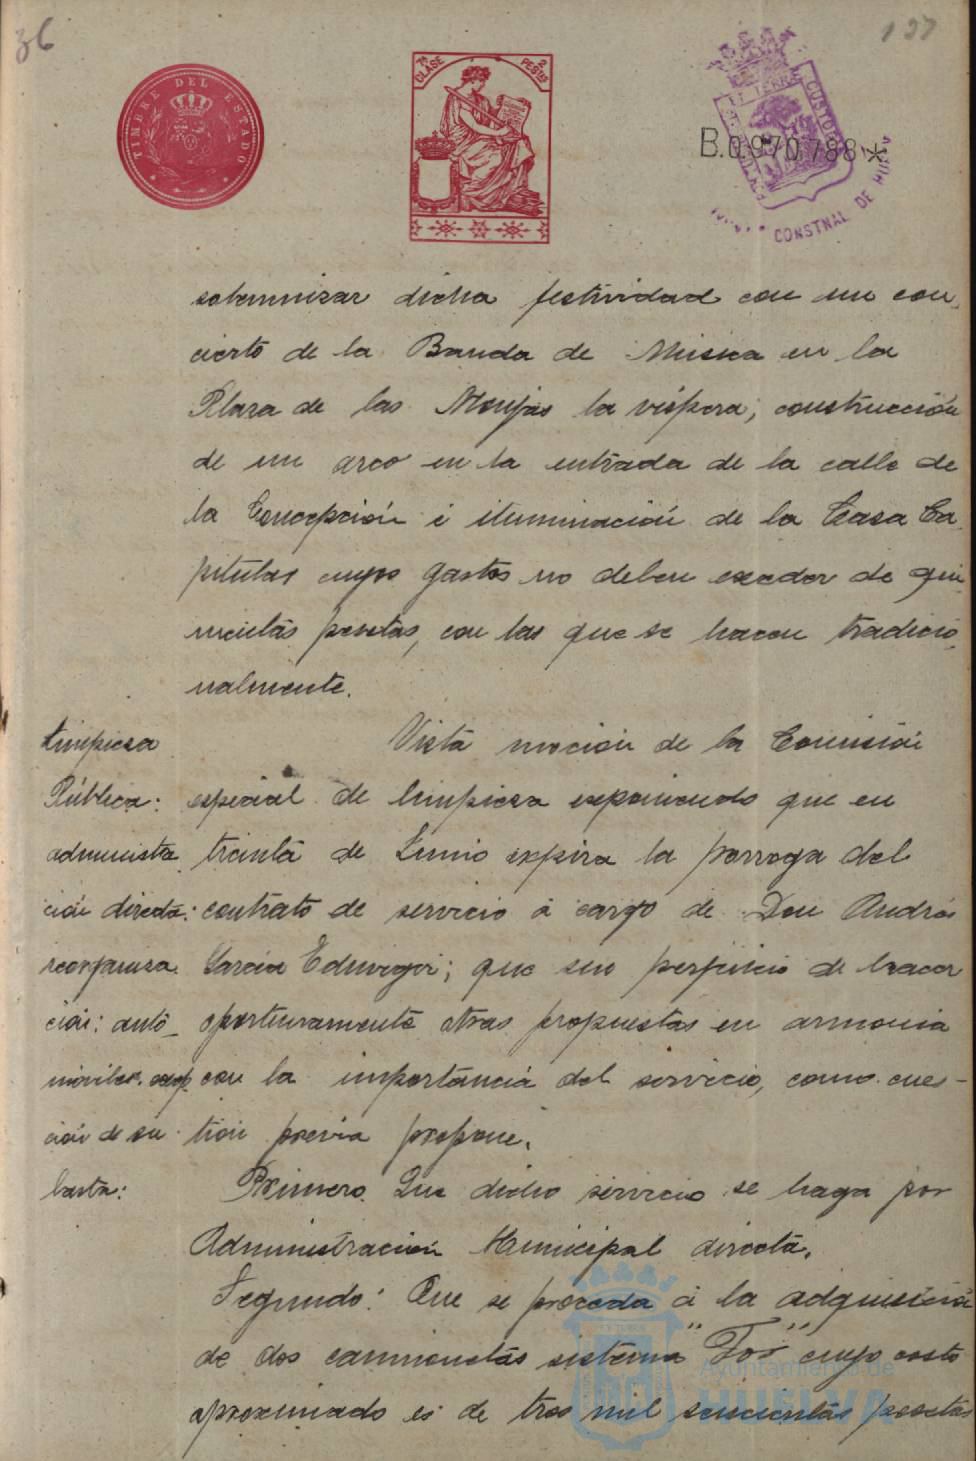 36
137
TIMBRE DEL ESTADO
7ª CLASE 2 PESTAS
B.0.970.788*
CONSTNAL DE HUELVA
solemnizar dicha festividad con un con-
cierto de la Banda de Música en la
Plaza de las Monjas la víspera; construcción
de un arco en la entrada de la calle de
la Concepción é iluminación de la Casa Ca-
pitular cuyos gastos no deben exceder de qui-
nientas pesetas, con las que se hacen tradicio-
nalmente.
Limpieza
Pública:
administra-
ción directa:
reorganiza-
ción: auto-
móviles: excep-
ción de su-
basta:
Vista moción de la Comisión
especial de limpieza exponiendo que en
treinta de Junio expira la porroga del
contrato de servicio á cargo de Don Andrés
García ; que sin perjuicio de hacer
oportunamente otras propuestas en armonía
con la importancia del servicio, como cues-
tión previa propone.
Primero. Que dicho servicio se haga por
Administración Municipal directa.
Segundo: Que se proceda á la adquisición
de dos camionetas sistema "For" cuyo costo
aproximado es de tres mil seiscientas pesetas
Ayuntamiento de
HUELVA